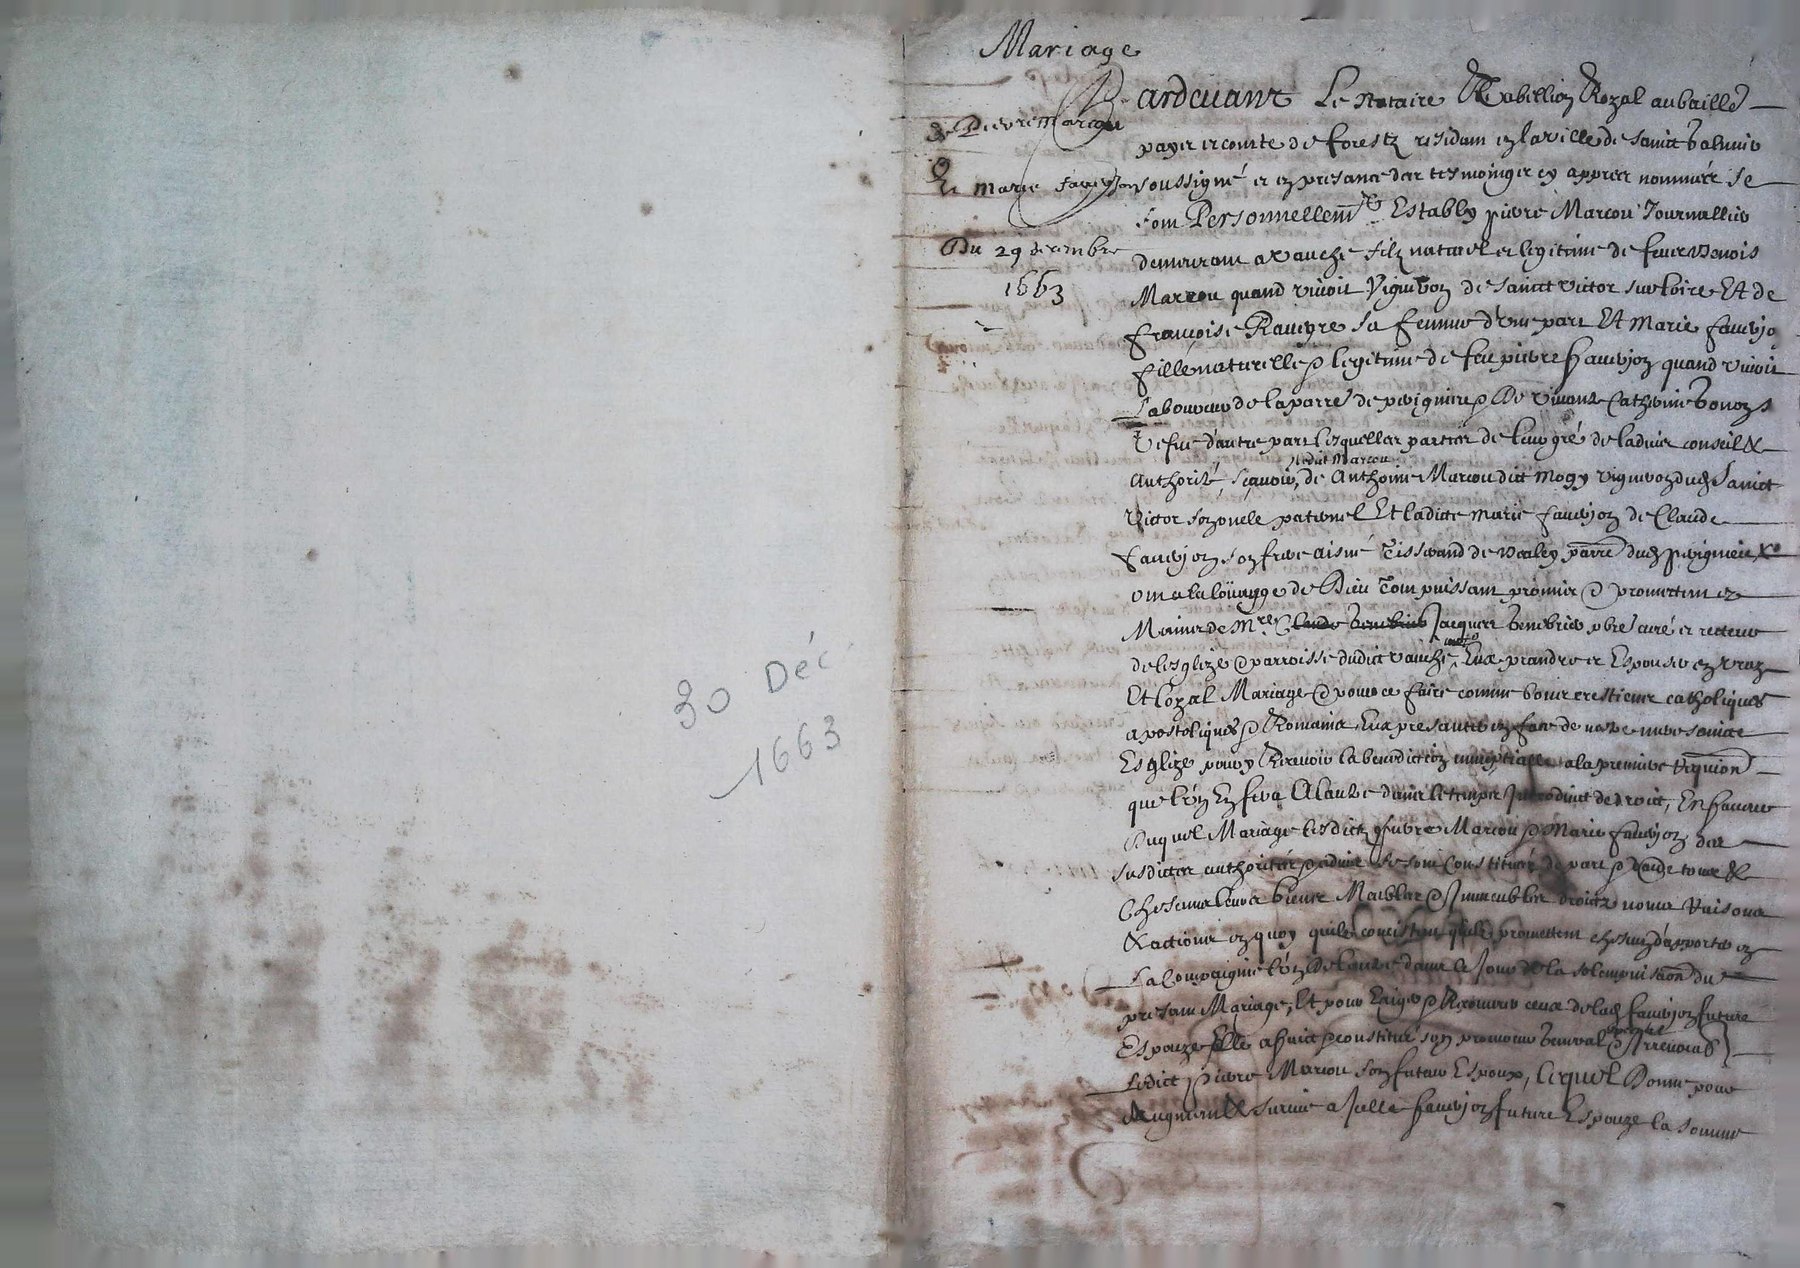 Mariage
de Pierre Marcou
Et marie fauvjon
Du 29 decembre
1663
30 Déc
1663
Pardevant Le notaire Tabellion Royal au baille
payer et comte de forestz residam en la ville de Sainct
soussigné et en presance der tesmoinger cy apprer nommér se
som Personnellemt Estably pierre Marcou Journallier
demeuram a Vauche filz naturel et legitime de feu Denois
Marcou quand vivoit Vigneron de Sainct Victor sur Loire Et de
françoise Raveyre sa femme d'une part Et Marie fauvjo
fille naturelle & legitime de feu pierre fauvjon quand vivoit
Laboureur de la parre de & De vivante Catherine
Vefue d'autre part lesqueller parter de leur gré de l'advier conseil &
Authorité, sçavoir, ledict Marcou de Anthoine Marcou dict Mogy vigneron dud Sainct
Victor son oncle paternel Et ladicte Marie fauvjon de Claude
fauvjon son frere aisné Tisserand de parre dud
om a la loüange de Dieu Tom puissam promier & promettem
de Mre Claude Jacquer pbre curé et recteur
de lesglize & parroisse dudict Vauche, Eux prandre et Espouser en vray
Et loyal Mariage & pour ce faire comme bonr crestienr catholiques
apostoliques & Romains Eux presanter en face de nostre mere saincte
Esglize pour y Recevoir la benediction nuiptialle a la premiere requion
que l'un En fera A lautre danr le tempr Introduict de droict, En faveur
Duquel Mariage lesdictz pierre Marcou & Marie fauvjon der
susdicter authoritér & advier se som Constituér de part & dautre tour &
Chescunr leurr bienr Meubler & Immeubler droictz nomr Raisonr
& actionr en quoy quilz concistem quilz promettem chescun d'apporter en
La Compaignie l'un de lautre danr le Jour de la solempnisaon du
presam Mariage, Et pour Exiger & Recouvrer ceux de lad fauvjon future
Espouze Elle a faict & constitué son procureur general special & Irrevocable
Ledict pierre Marcou son futeur Espoux, lequel Donne pour
Augment & survie a Icelle fauvjon future Espouze la somme